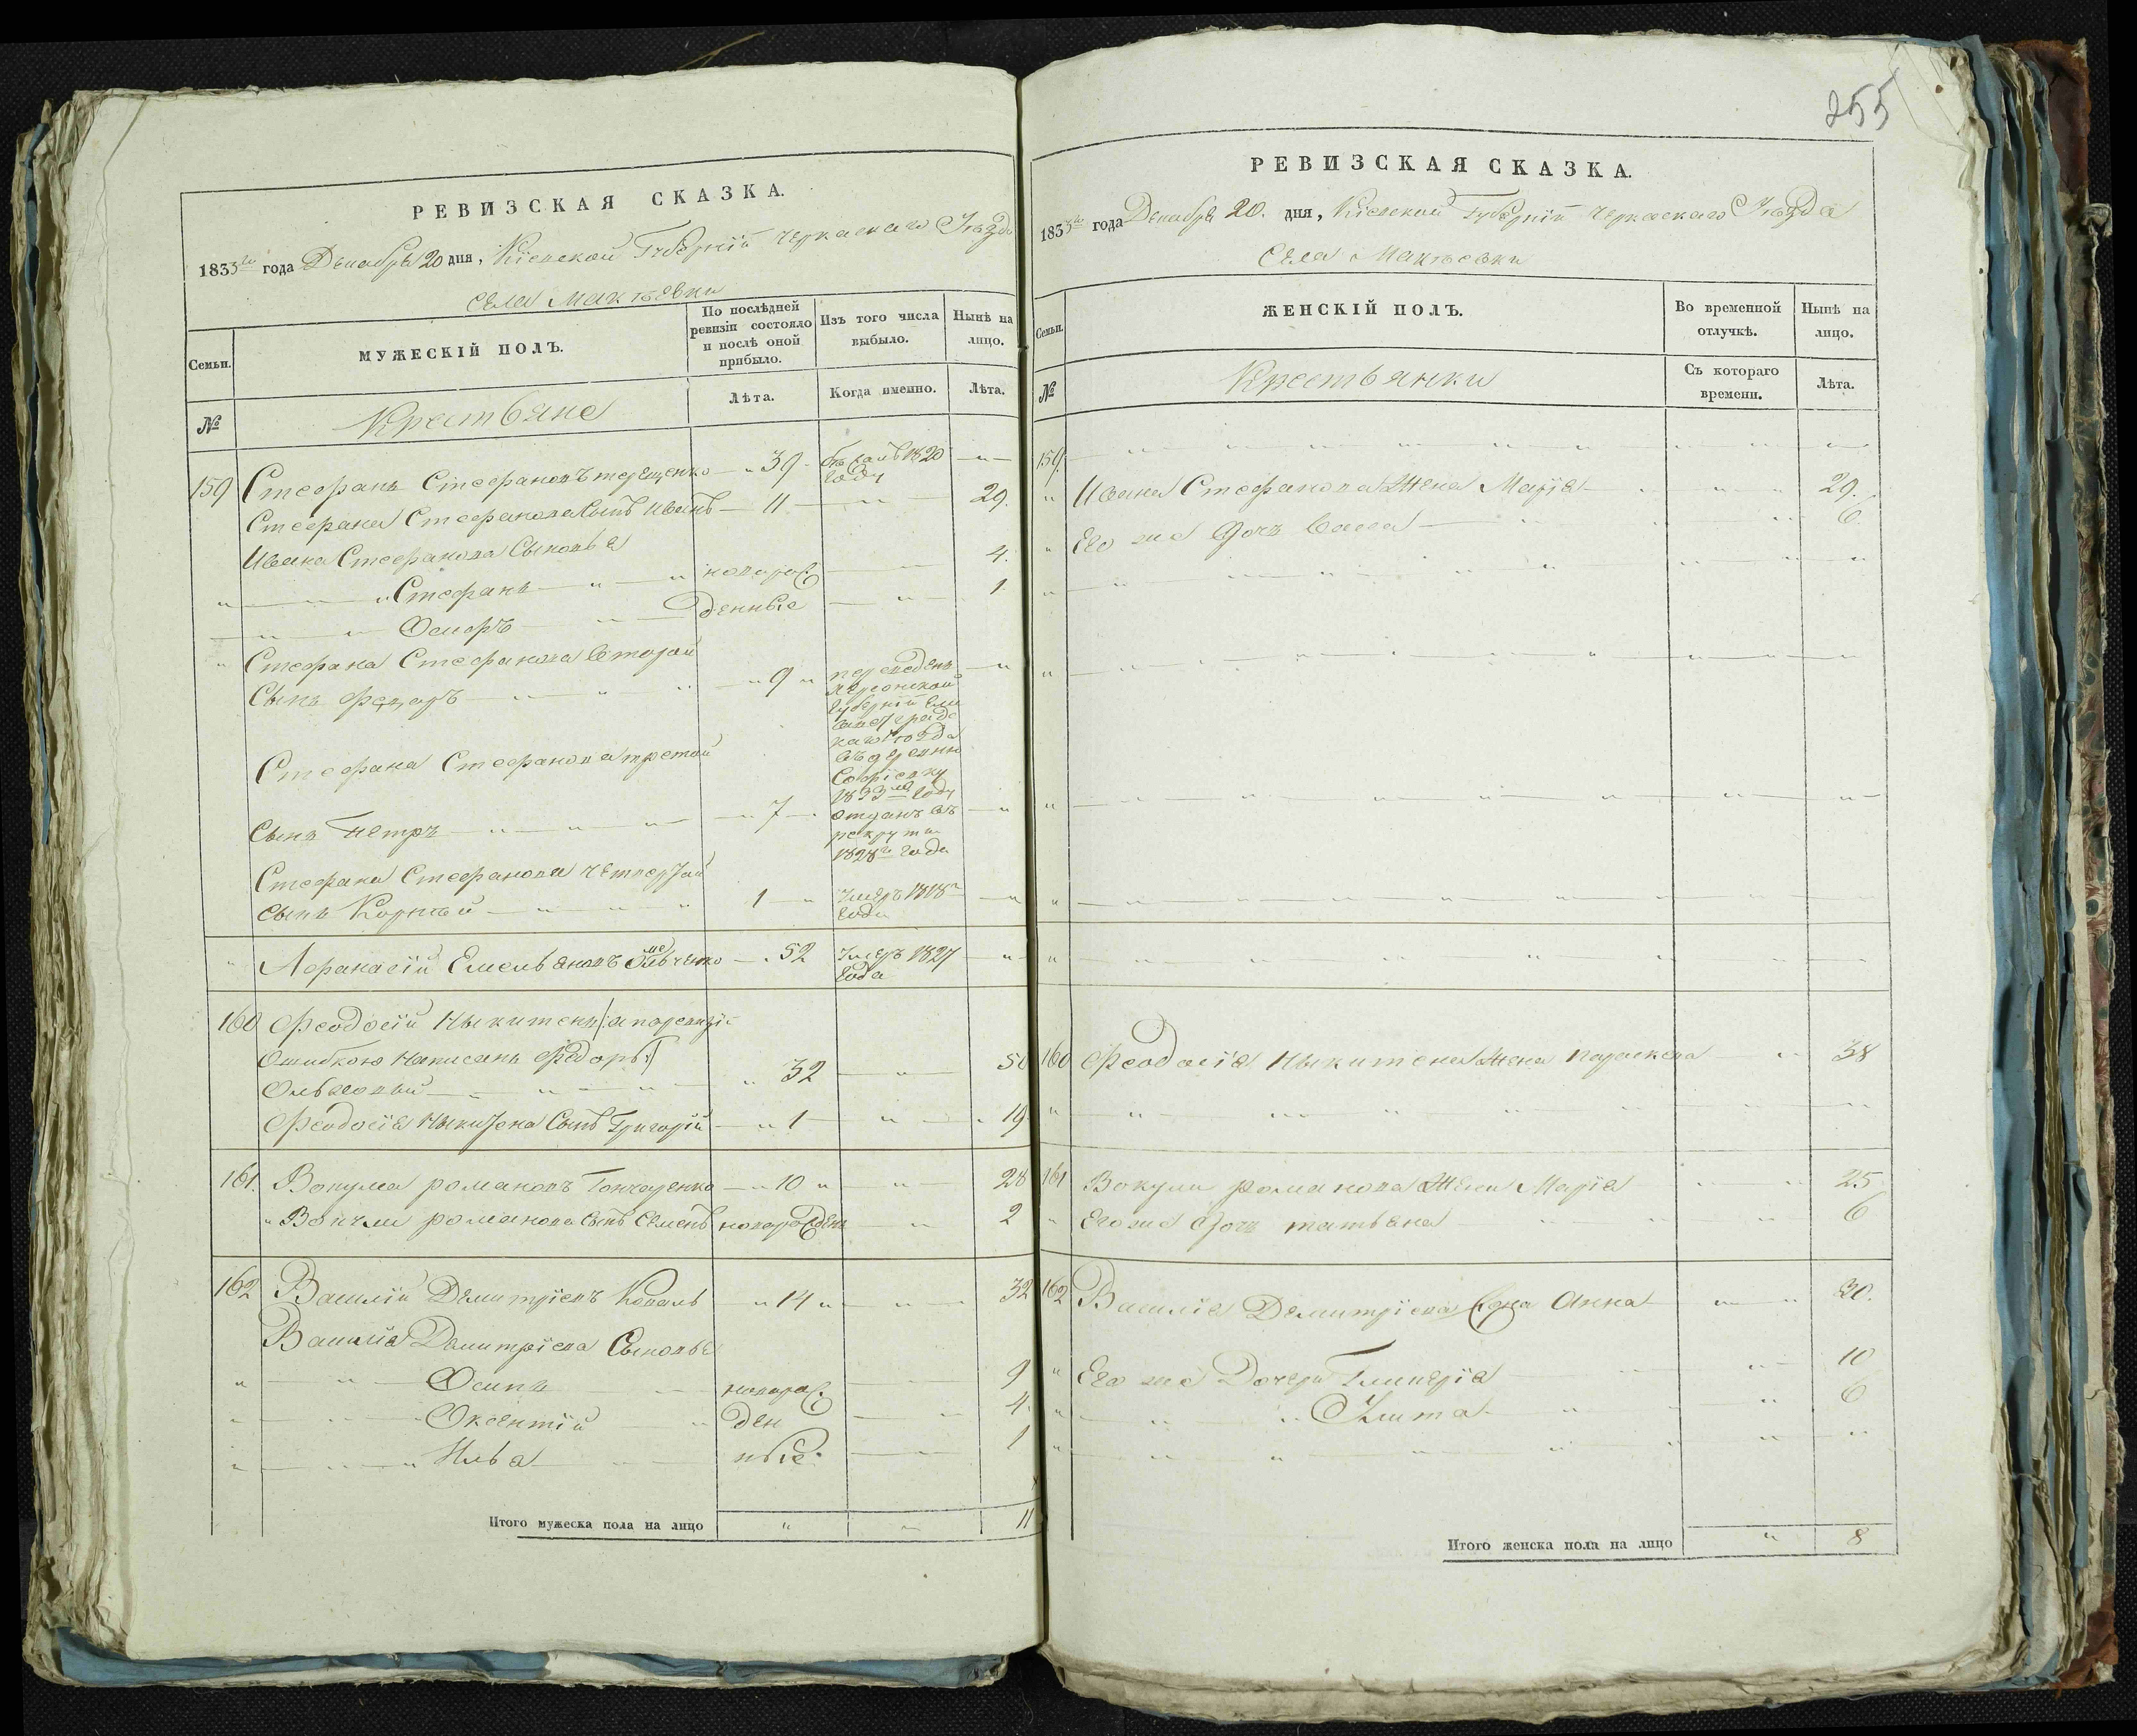 РЕВИЗСКАЯ СКАЗКА.
1833го года Декабря 20 дня, Кіевской Губерніи Черкаскаго Уѣзда
Села Макѣевки
Семьи.
МУЖЕСКІЙ ПОЛЪ.
По послѣдней ревизіи состояло и послѣ оной прибыло.
Изъ того числа выбыло.
Нынѣ на лицо.
№
Крестьяне
Лѣта.
Когда именно.
Лѣта.
159 Стефанъ Стефановъ терещенко 39 бѣжалъ 1820 году
Стефана Стефанова Сынъ Иванъ 11 29.
Ивана Стефанова Сыновья
Стефанъ новорож 4.
Осипъ денные 1
Стефана Стефанова Второй
Сынъ Федоръ 9 переведенъ
херсонской
губерніи Ели
саветградс
каго Уѣзда
въ деревню
Софіевку
1833го году
Стефана Стефанова третой
Сынъ Петръ 7 отданъ въ
рекруты
1828го года
Стефана Стефанова четвертой
Сынъ Корнѣй 1 Умеръ 1818го
года
Афанасій Емельяновъ 52 Умеръ 1827
года
160 Феодосій Ныкитенъ /: а поревизіи
Ошибкою написанъ Федоръ :/
32 50
Феодосія Ныкитена Сынъ Григорій 1 19
161. Вокула романовъ Гончаренко 10 28
Вокулы романова Сынъ Семенъ новорожден 2
162 Василій Демитріевъ Коваль 14 32
Василія Демитріева Сыновья
Осипъ новорож 9
Оксентій ден 4.
Илья ные. 1
Итого мужеска пола на лицо 11
255
РЕВИЗСКАЯ СКАЗКА.
1833го года Декабря 20. дня, Кіевской Губерніи Черкаскаго Уѣзда
Села Макѣевки
Семьи.
ЖЕНСКІЙ ПОЛЪ.
Во временной отлучкѣ.
Нынѣ на лицо.
№
Крестьянки
Съ котораго времени.
Лѣта.
159.
Ивана Стефанова Жена Марія 29.
Его же Дочь 6.
160 Феодосія Ныкитена Жена параскева 38
161 Вокулы романова Жена Марія 25
Его же Дочь татьяна 6
162 Василія Демитріева Жена Анна 30.
Его же Дочери Гликерія 10
6
Итого женска пола на лицо 8